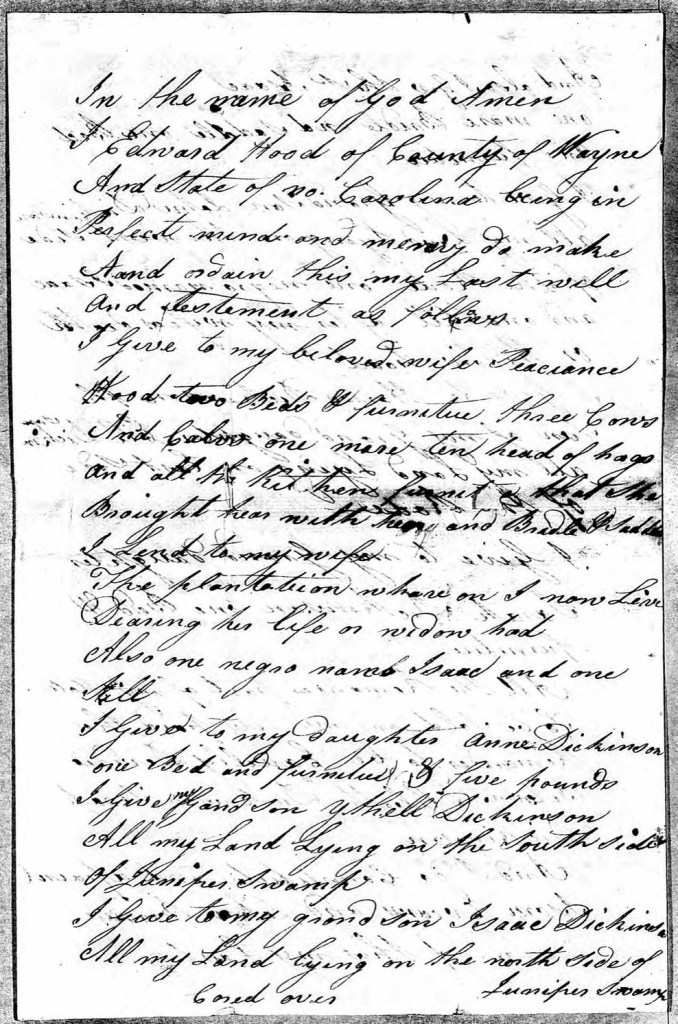 In the name of God Amen
I Edward Hood of County of Wayne
And State of no. Carolina being in
Perfect mind and memory do make
Aand ordain this my Last will
And testement as follows
I Give to my beloved wife Peaciance
Hood two Beds & furnitue three Cows
And Calvs one mare ten head of hogs
and all the Kitchen furnit that She
Brought hear with her and Bridle & Saddle
I Lend to my wife
The plantation whare on I now Live
Dearing her life or widow had
Also one negro named Isaac and one
Still
I Give to my daughter Anne Dickinson
one Bed and furnitue & five pounds
I Give my Gandson ythell Dickinson
All my Land Lying on the South side
Of Juniper Swamp
I Give to my grandson Isaac Dickinson
All my Land lying on the north side of
Juniper Swamp
over